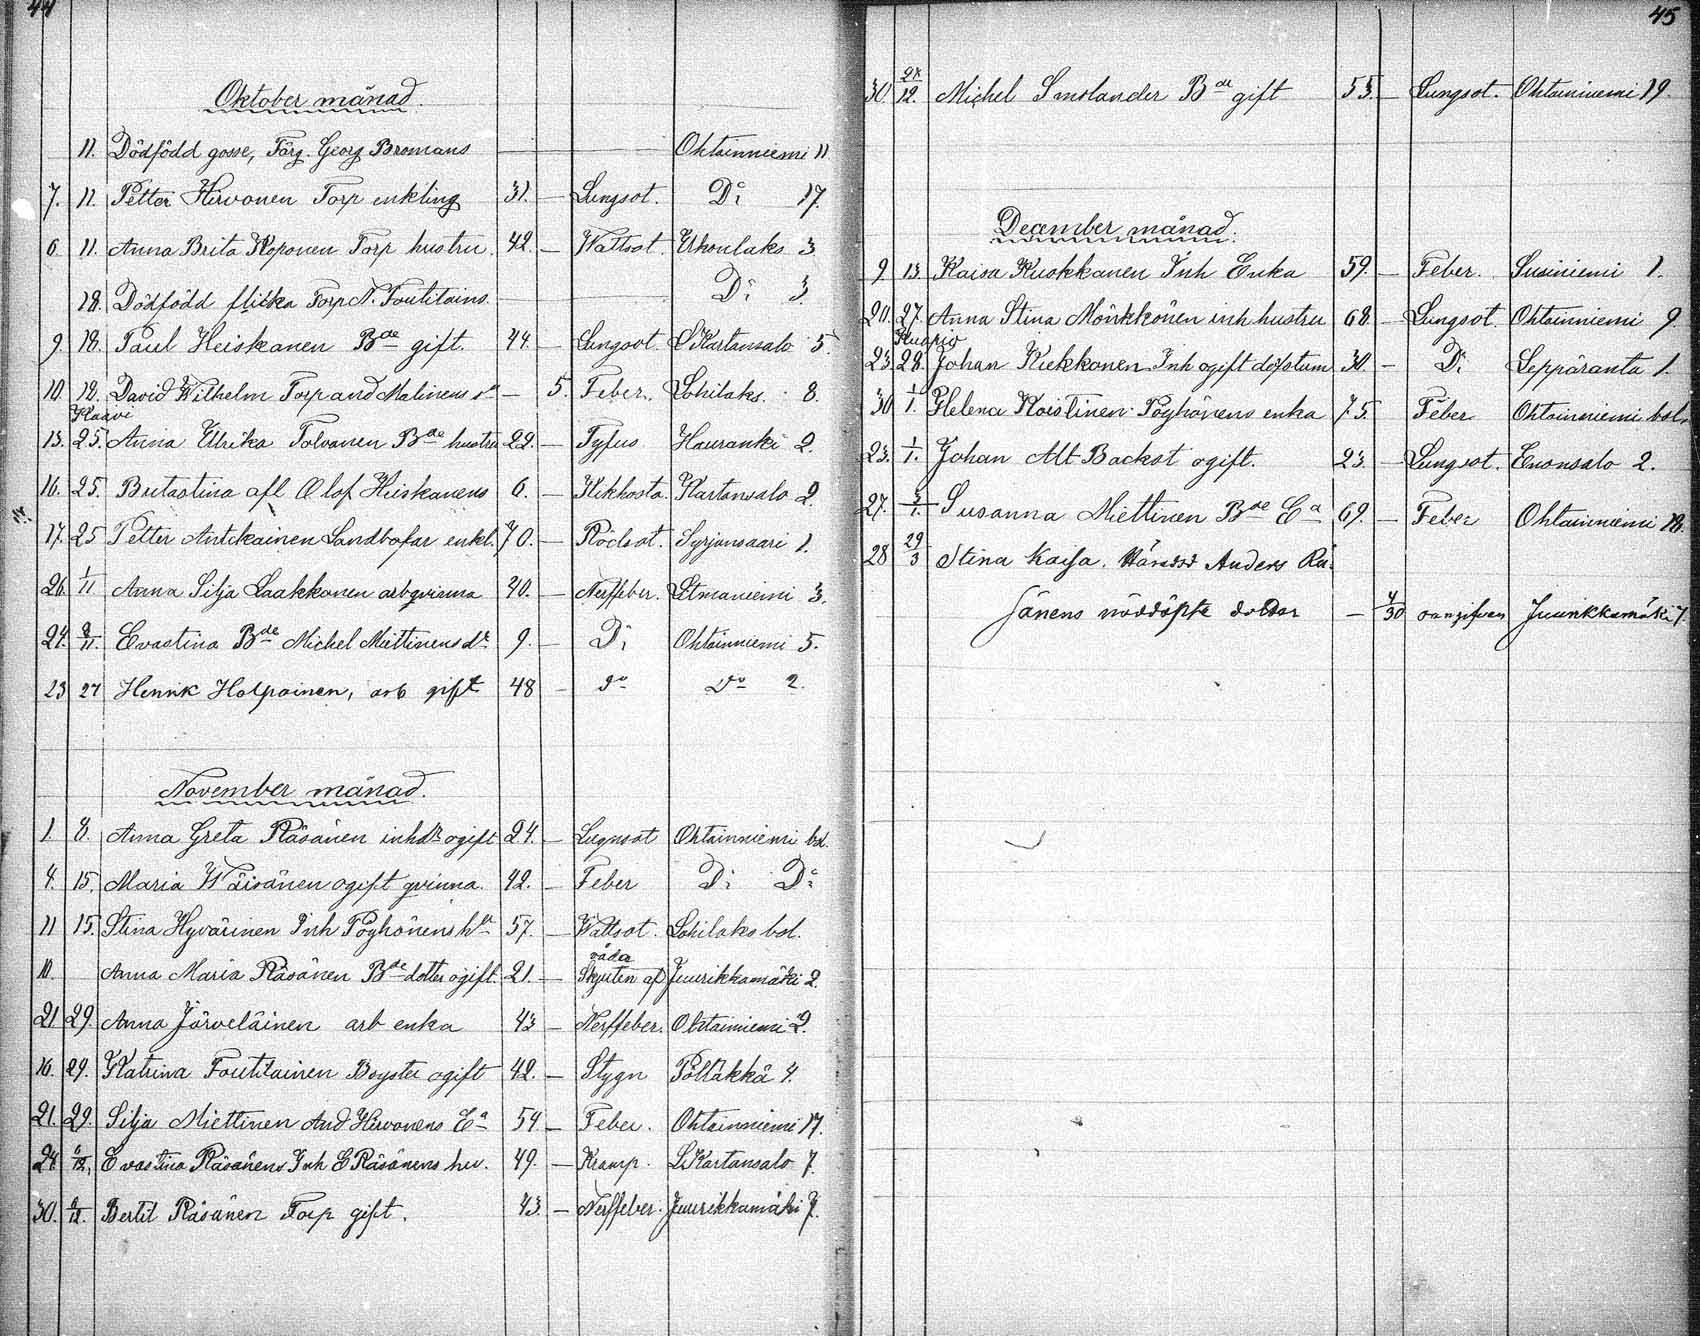 44
Oktober månad.
11. Dödfödd gosse, Färg. Georg Bromans Ohtainniemi 11
7. 11. Petter Hirvonen Torp enkling 31. — Lungsot. Do 17.
6. 11. Anna Brita Koponen Torp hustru. 42. — Wattsot Ukonlaks 3
18. Dödfödd flicka Torp N. Toutitains. Do 3.
9. 18. Paul Heiskanen Bde gift. 44. — Lungsot. S Kartansalo 5.
10. 18. David Wilhelm Torp and Malinens — 5. Feber. Lohilaks. 8.
Kaavi
13. 25. Anna Ulrika Tolvanen Bde hustru 22. — Tyfus Hauranki 2.
16. 25. Britastina afl Olof Heiskanens 6. — Kikhosta. Kartansalo 2
17. 25 Petter Antikainen Landbofar enkl. 70. — Rödsot. Syrjänsaari 1.
26. 1/11 Anna Silja Laakkonen arbqvinna 40. — Nerffeber. Letmaniemi 3.
24. 8/11. Evastina Bde Michel Miettinens dr 9. — Do Ohtainniemi 5.
23 27 Henrik Holpainen, arb gift 48 — do Do 2.
November månad.
1. 8. Anna Greta Räsänen inhdr ogift 24. — Lugnsot Ohtainniemi bol.
4. 15. Maria Wäisänen ogift qvinna. 42. — Feber Do Do
11 15. Stina Hyvärinen Inh Pöyhönens hu 57. — Wattsot. Lohilaks bol.
våda
10. Anna Maria Räsänen Bde dotter ogift. 21. — Skjuten af Juurikkamäki 2.
21 29. Anna Järveläinen arb enka 43 — Nerffeber. Ohtainniemi 2.
16. 29. Katrina Toutitainen Boyster ogift 42. — Stygn Pölläkkä 4.
21. 29. Silja Miettinen And Hirvonens Ea 54 — Feber. Ohtainniemi 17.
24. 6/12. Evastina Räsänens Inh E Räsänens hu. 49. — Kramp. L. Kartansalo 7.
30. 6/12. Bertil Räsänen Torp gift. 43. — Nerffeber. Juurikkamäki 7.
45
30. 27/12. Michel Smolander Bde gift 55. — Lungsot. Ohtainniemi 19.
December månad.
9 13. Kaisa Kuokkanen Inh Enka 59. — Feber. Susiniemi 1.
20. 27. Anna Stina Mönkkönen inh hustru 68. — Lungsot. Ohtainniemi 9.
Kuopio
23. 28. Johan Kiekkonen Inh ogift döfstum 30. — Do Leppäranta 1.
30 1/1. Helena Koistinen Pöyhönens enka 75. Feber Ohtainniemi bol.
23. 1/1. Johan Alt Backst ogift. 23. — Lungsot. Enonsalo 2.
27. 3/1. Susanna Miettinen Bde Ea 69. — Feber Ohtainniemi 18.
28 29/3 Stina Kaisa. Anders Rä-
sänens nöddöpta dotter — 4/30 Juurikkamäki 7.